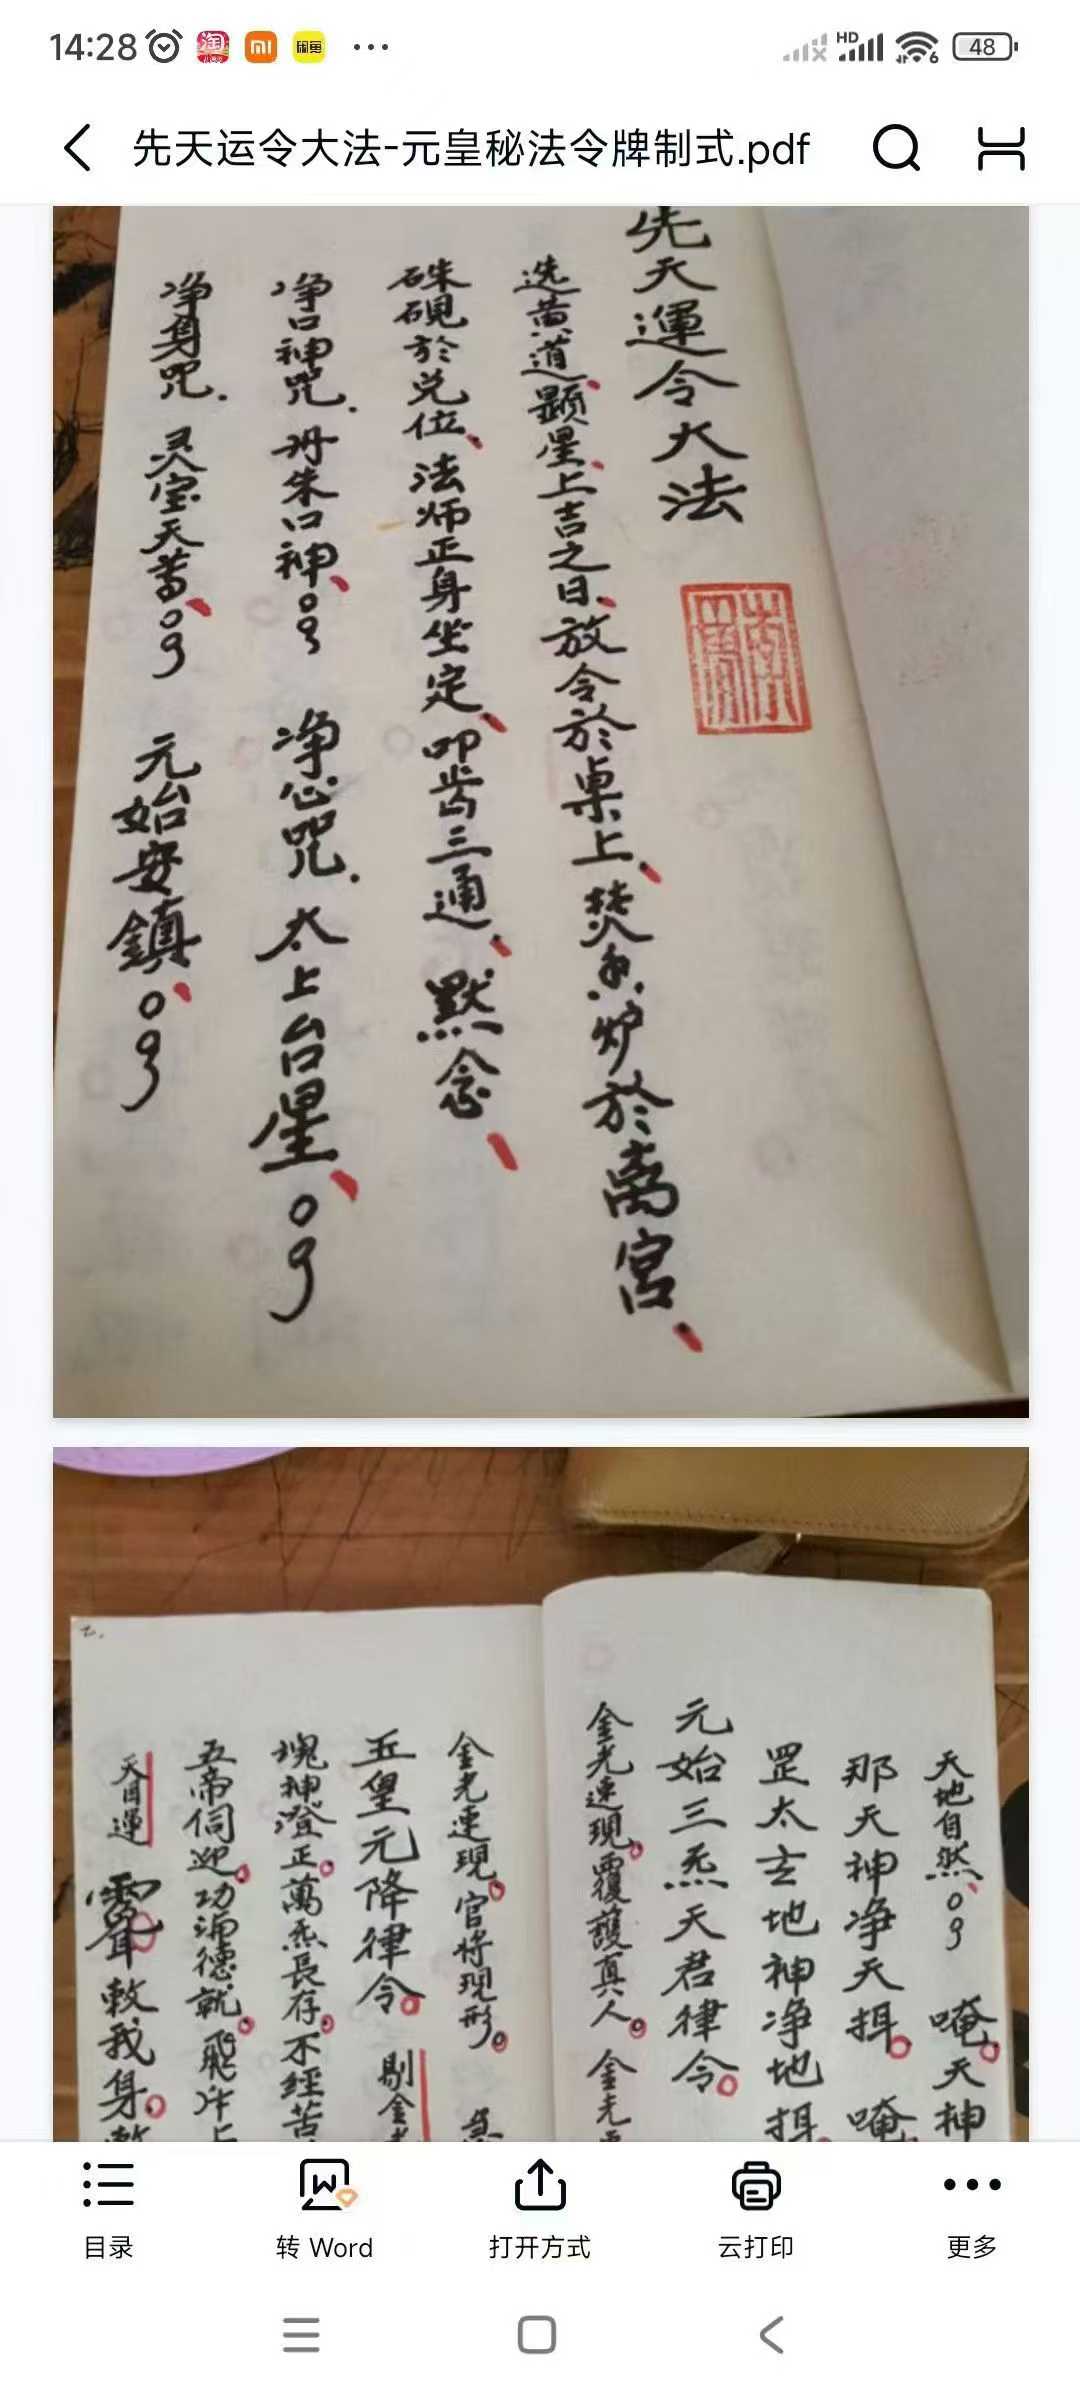 14:28
HD
6
48
先天运令大法-元皇秘法令牌制式.pdf
先天運令大法
选黄道、题星、上吉之日、放令於桌上、焚香炉於离宫、
硃砚於兑位、法师正身坐定、叩齿三通、默念、
净口神咒.丹朱口神、净心咒.太上台星、
净身咒.灵宝天尊、元始安鎮、
天地自然、唵。天神
那天神净天揖。唵
罡太玄地神净地揖
元始三炁天君律令。
金光速現。覆護真人。金光
金光速現。官将现形。急
五皇元降律令。
魂神澄正。萬炁長存。不經苦
五帝伺迎。功满德就。飛升上
天目運 敕我身。敕
目录
转 Word
打开方式
云打印
更多